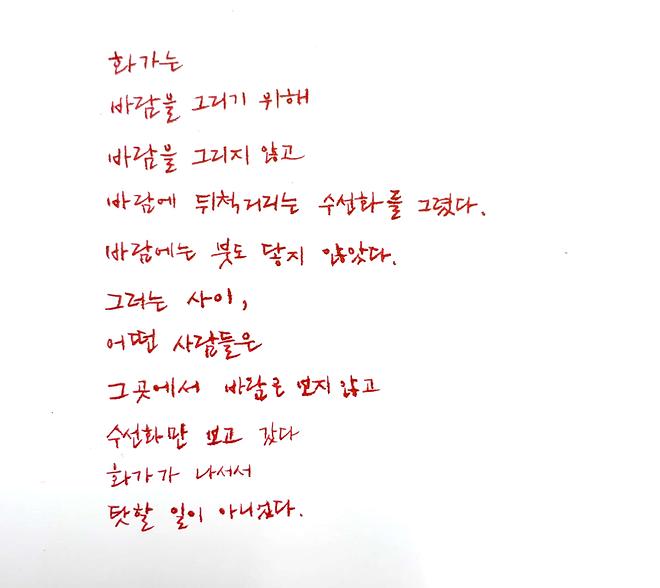 화가는
바람을 그리기 위해
바람을 그리지 않고
바람에 뒤척거리는 수선화를 그렸다.
바람에는 붓도 닿지 않았다.
그러는 사이,
어떤 사람들은
그곳에서 바람은 보지 않고
수선화만 보고 갔다
화가가 나서서
탓할 일이 아니었다.